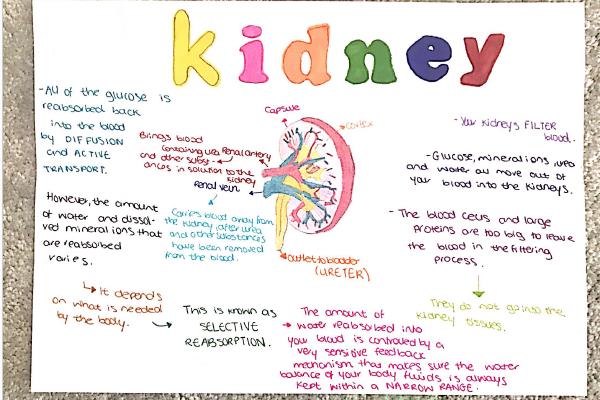 kidney
- All of the glucose is
reabsorbed back
into the blood
by DIFFUSION
and ACTIVE
TRANSPORT.
However, the amount
of water and dissol-
ved mineral ions that
are reabsorbed
varies.
It depends
on what is needed
by the body.
This is known as
SELECTIVE
REABSORPTION.
Capsule
cortex
Renal artery
Brings blood
containing urea
and other subst-
ances in solution to the
kidney
Renal vein
Carries blood away from
the kidney, after urea
and other substances
have been removed
from the blood.
outlet to bladder
(URETER)
The amount of
water reabsorbed into
your blood is controlled by a
very sensitive feedback
mechanism that makes sure the water
balance of your body fluids is always
kept within a NARROW RANGE.
- Your kidneys FILTER
blood.
- Glucose, mineral ions, urea
and water all move out of
your blood into the kidneys.
- The blood cells and large
proteins are too big to leave
the blood in the filtering
process.
They do not go into the
kidney tissues.